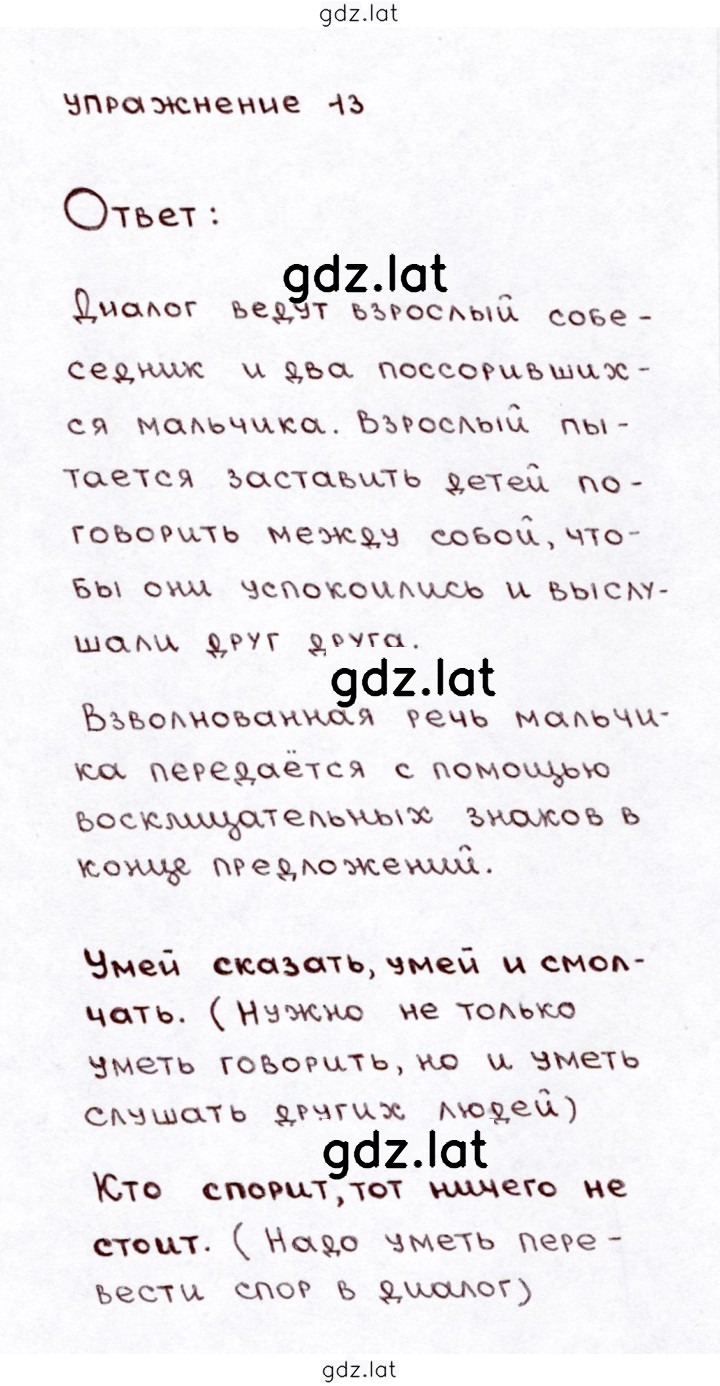 gdz.lat
упражнение 13
Ответ:
gdz.lat
Диалог ведут взрослый собе-
седник и два поссоривших-
ся мальчика. Взрослый пы-
тается заставить детей по-
говорить между собой, что-
бы они успокоились и выслу-
шали друг друга.
gdz.lat
Взволнованная речь мальчи-
ка передаётся с помощью
восклицательных знаков в
конце предложений.
Умей сказать, умей и смол-
чать. (Нужно не только
уметь говорить, но и уметь
слушать других людей)
gdz.lat
Кто спорит, тот ничего не
стоит. (Надо уметь пере-
вести спор в диалог)
gdz.lat